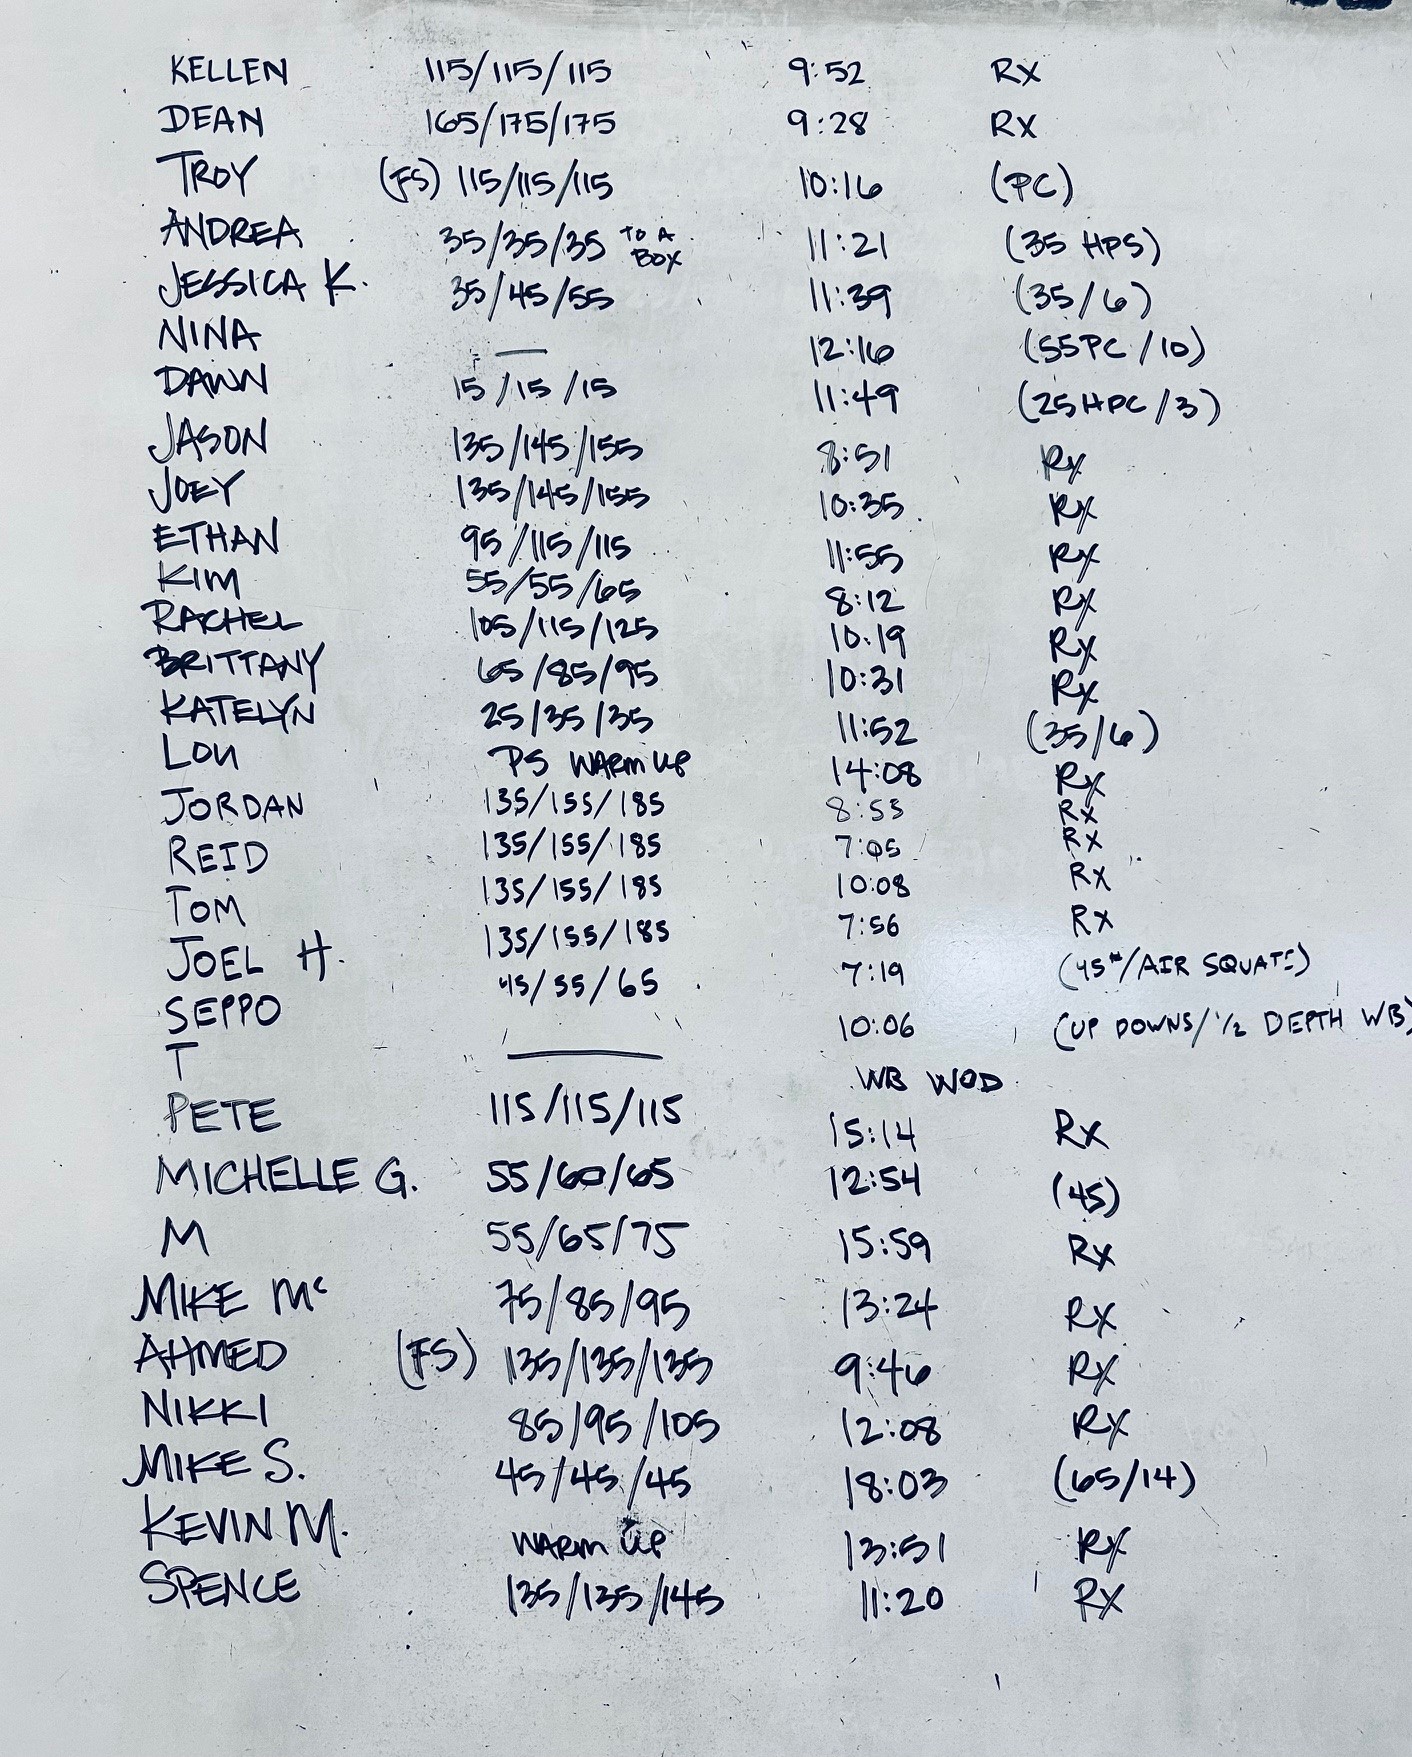 KELLEN 115/115/115 9:52 RX
DEAN 165/175/175 9:28 RX
TROY (FS) 115/115/115 10:16 (PC)
ANDREA 35/35/35 TO A BOX 11:21 (35 HPS)
JESSICA K. 35/45/55 11:39 (35/6)
NINA — 12:16 (55PC/10)
DAWN 15/15/15 11:49 (25HPC/3)
JASON 135/145/155 8:51 Rx
JOEY 135/145/155 10:35 Rx
ETHAN 95/115/115 11:55 Rx
KIM 55/55/65 8:12 Rx
RACHEL 105/115/125 10:19 Rx
BRITTANY 65/85/95 10:31 Rx
KATELYN 25/35/35 11:52 (35/6)
LOU PS WARM UP 14:08 Rx
JORDAN 135/155/185 8:53 Rx
REID 135/155/185 7:05 Rx
TOM 135/155/185 10:08 Rx
JOEL H. 135/155/185 7:56 Rx
SEPPO 45/55/65 7:19 (45#/AIR SQUATS)
T — 10:06 (UP DOWNS/½ DEPTH WB)
WB WOD
PETE 115/115/115 15:14 Rx
MICHELLE G. 55/60/65 12:54 (45)
M 55/65/75 15:59 Rx
MIKE Mc 75/85/95 13:24 Rx
AHMED (FS) 135/135/135 9:46 RX
NIKKI 85/95/105 12:08 RX
MIKE S. 45/45/45 18:03 (65/14)
KEVIN M. WARM UP 13:51 RX
SPENCE 135/135/145 11:20 RX